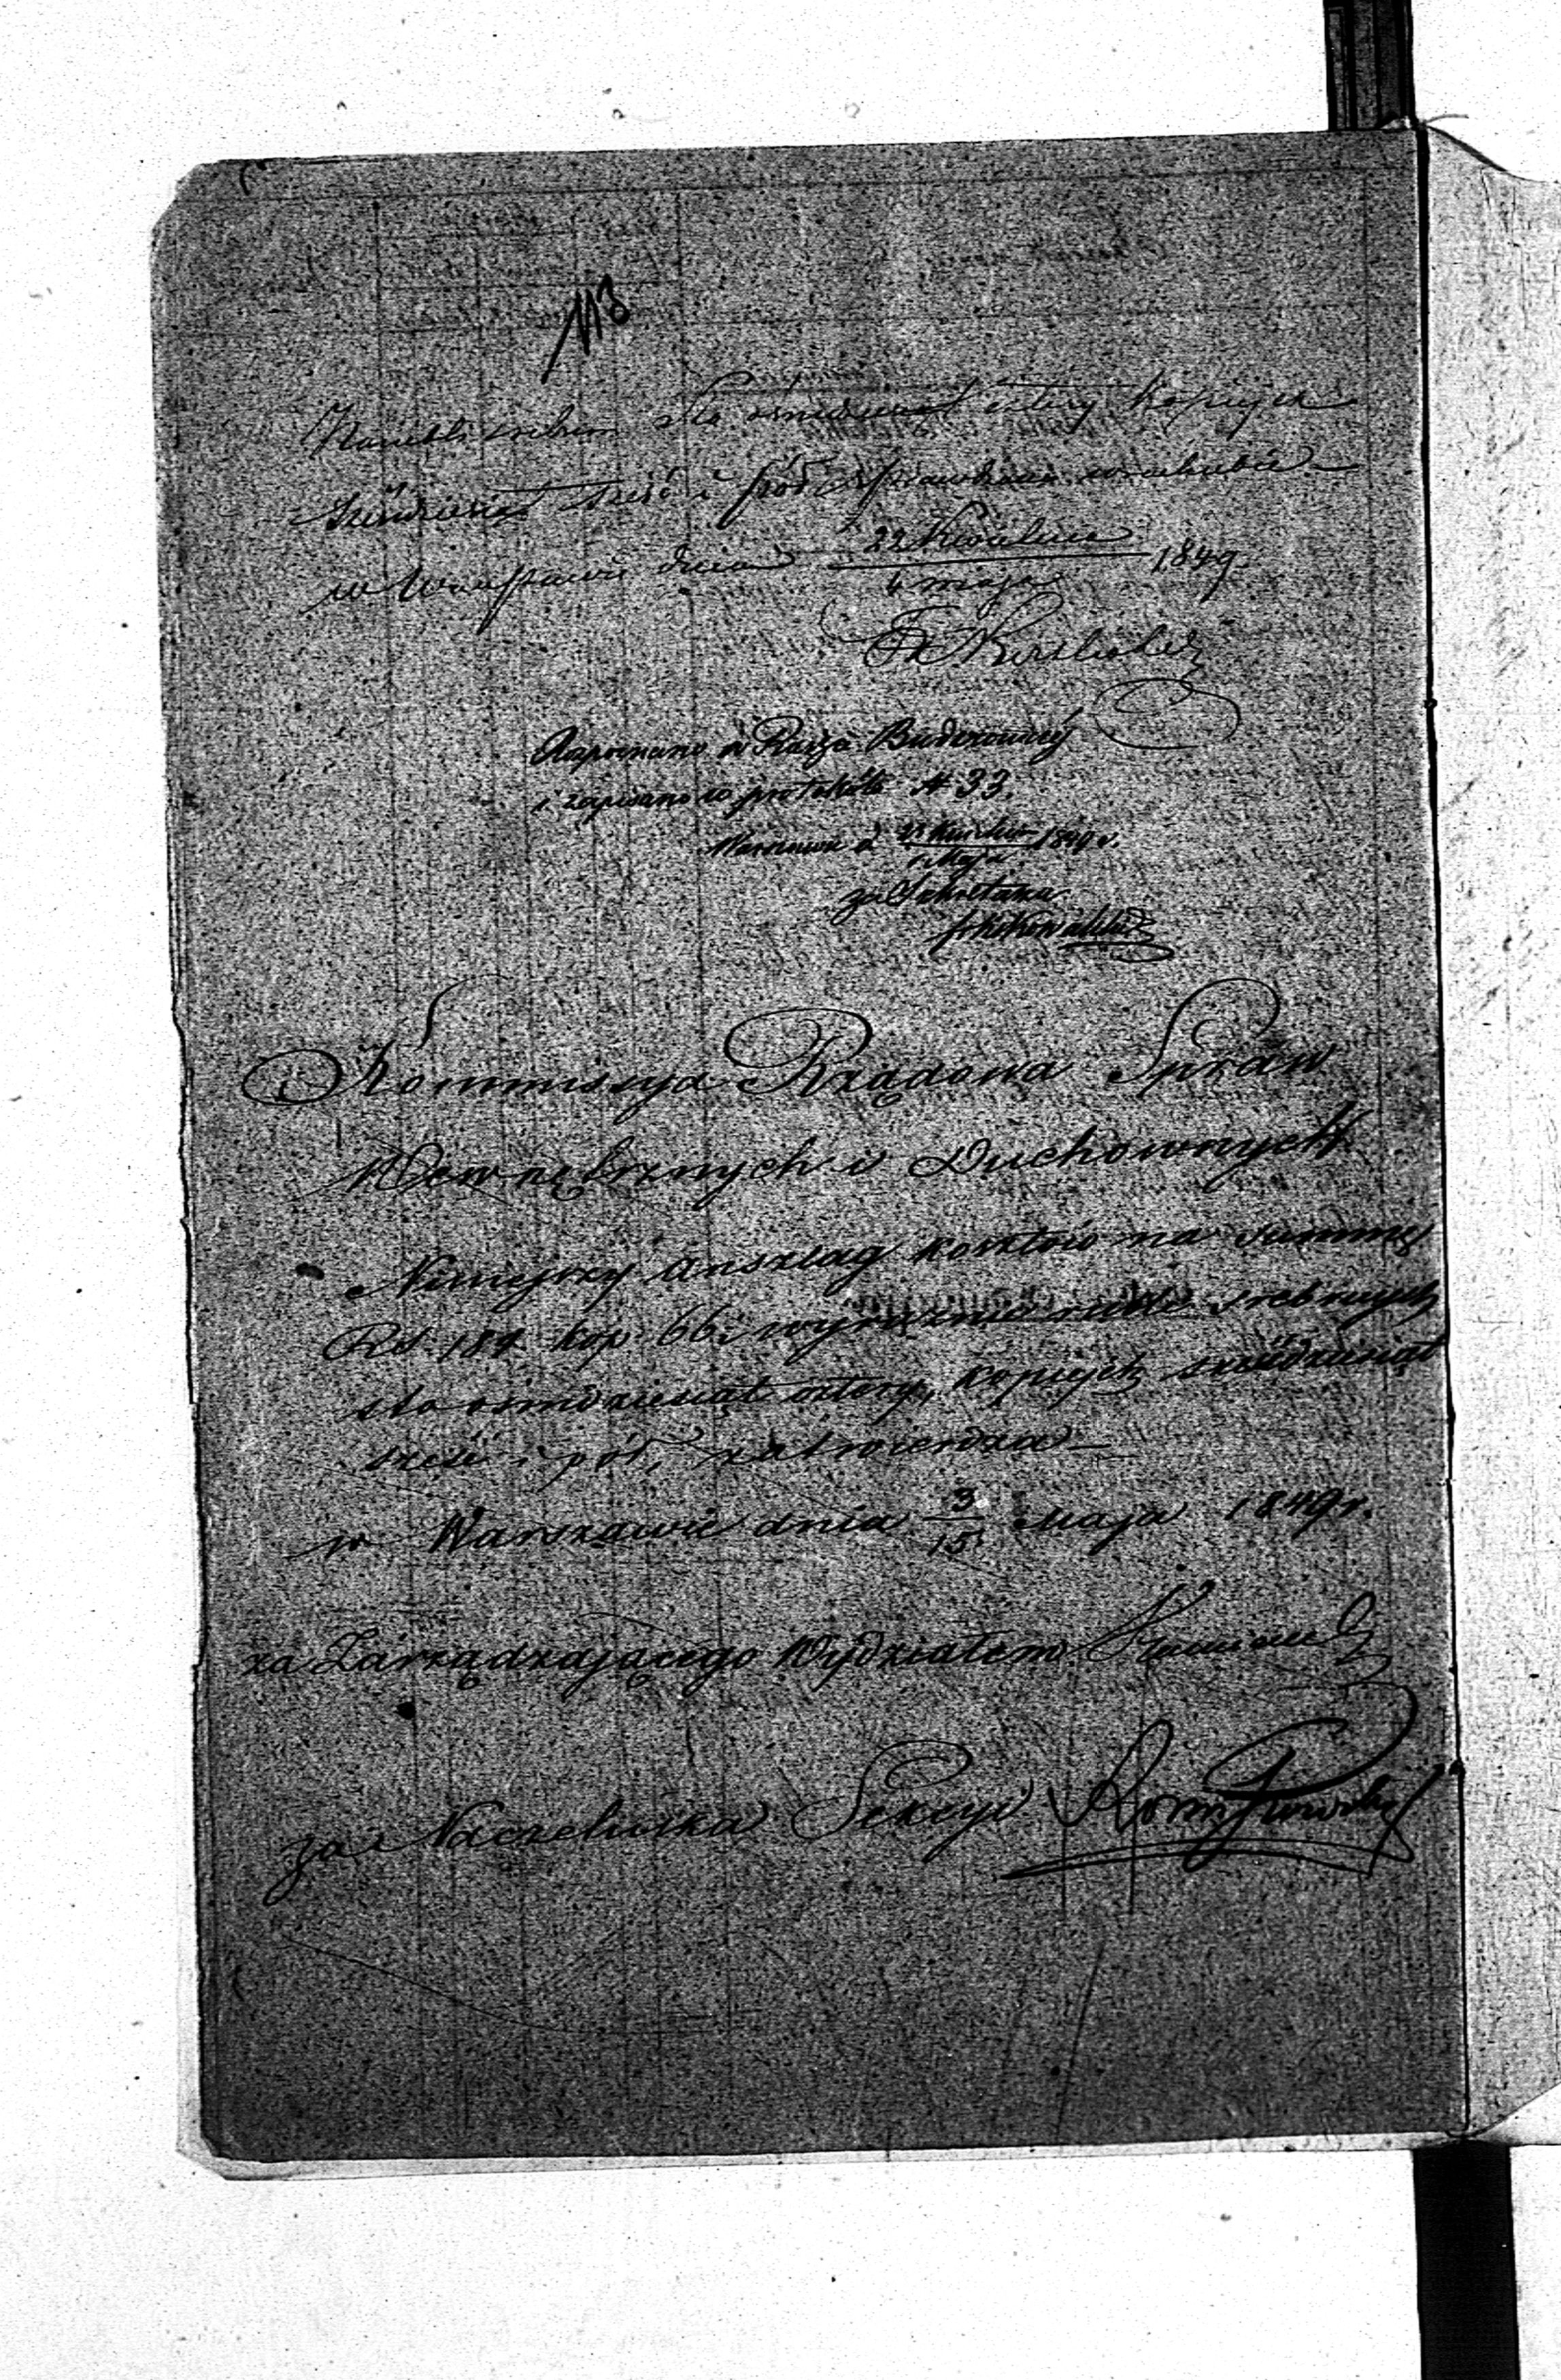 113
sto ośmdziesiąt cztery kopiejek
sześćdziesiąt sześć i pół sprawdzono w rachubie
w Warszawie dnia 22 Kwietnia / 4 maja 1849
Rozpoznano w Radzie Budowniczej
i zapisano w protokóle N 33.
Warszawa d. Kwietnia / Maja 1849 r.
za Sekretarza
Kommissya Rządowa Spraw
Wewnętrznych i Duchownych
Niniejszy Anszlag kosztów na summę
RS. 184 kop. 66½ wyraźnie rubli srebrnych
sto ośmdziesiąt cztery, kopiejek sześćdziesiąt
sześć i pół, zatwierdza
w Warszawie dnia 3/15 Maja 1849 r.
za Zarządzającego Wydziałem
za Naczelnika Sekcyi